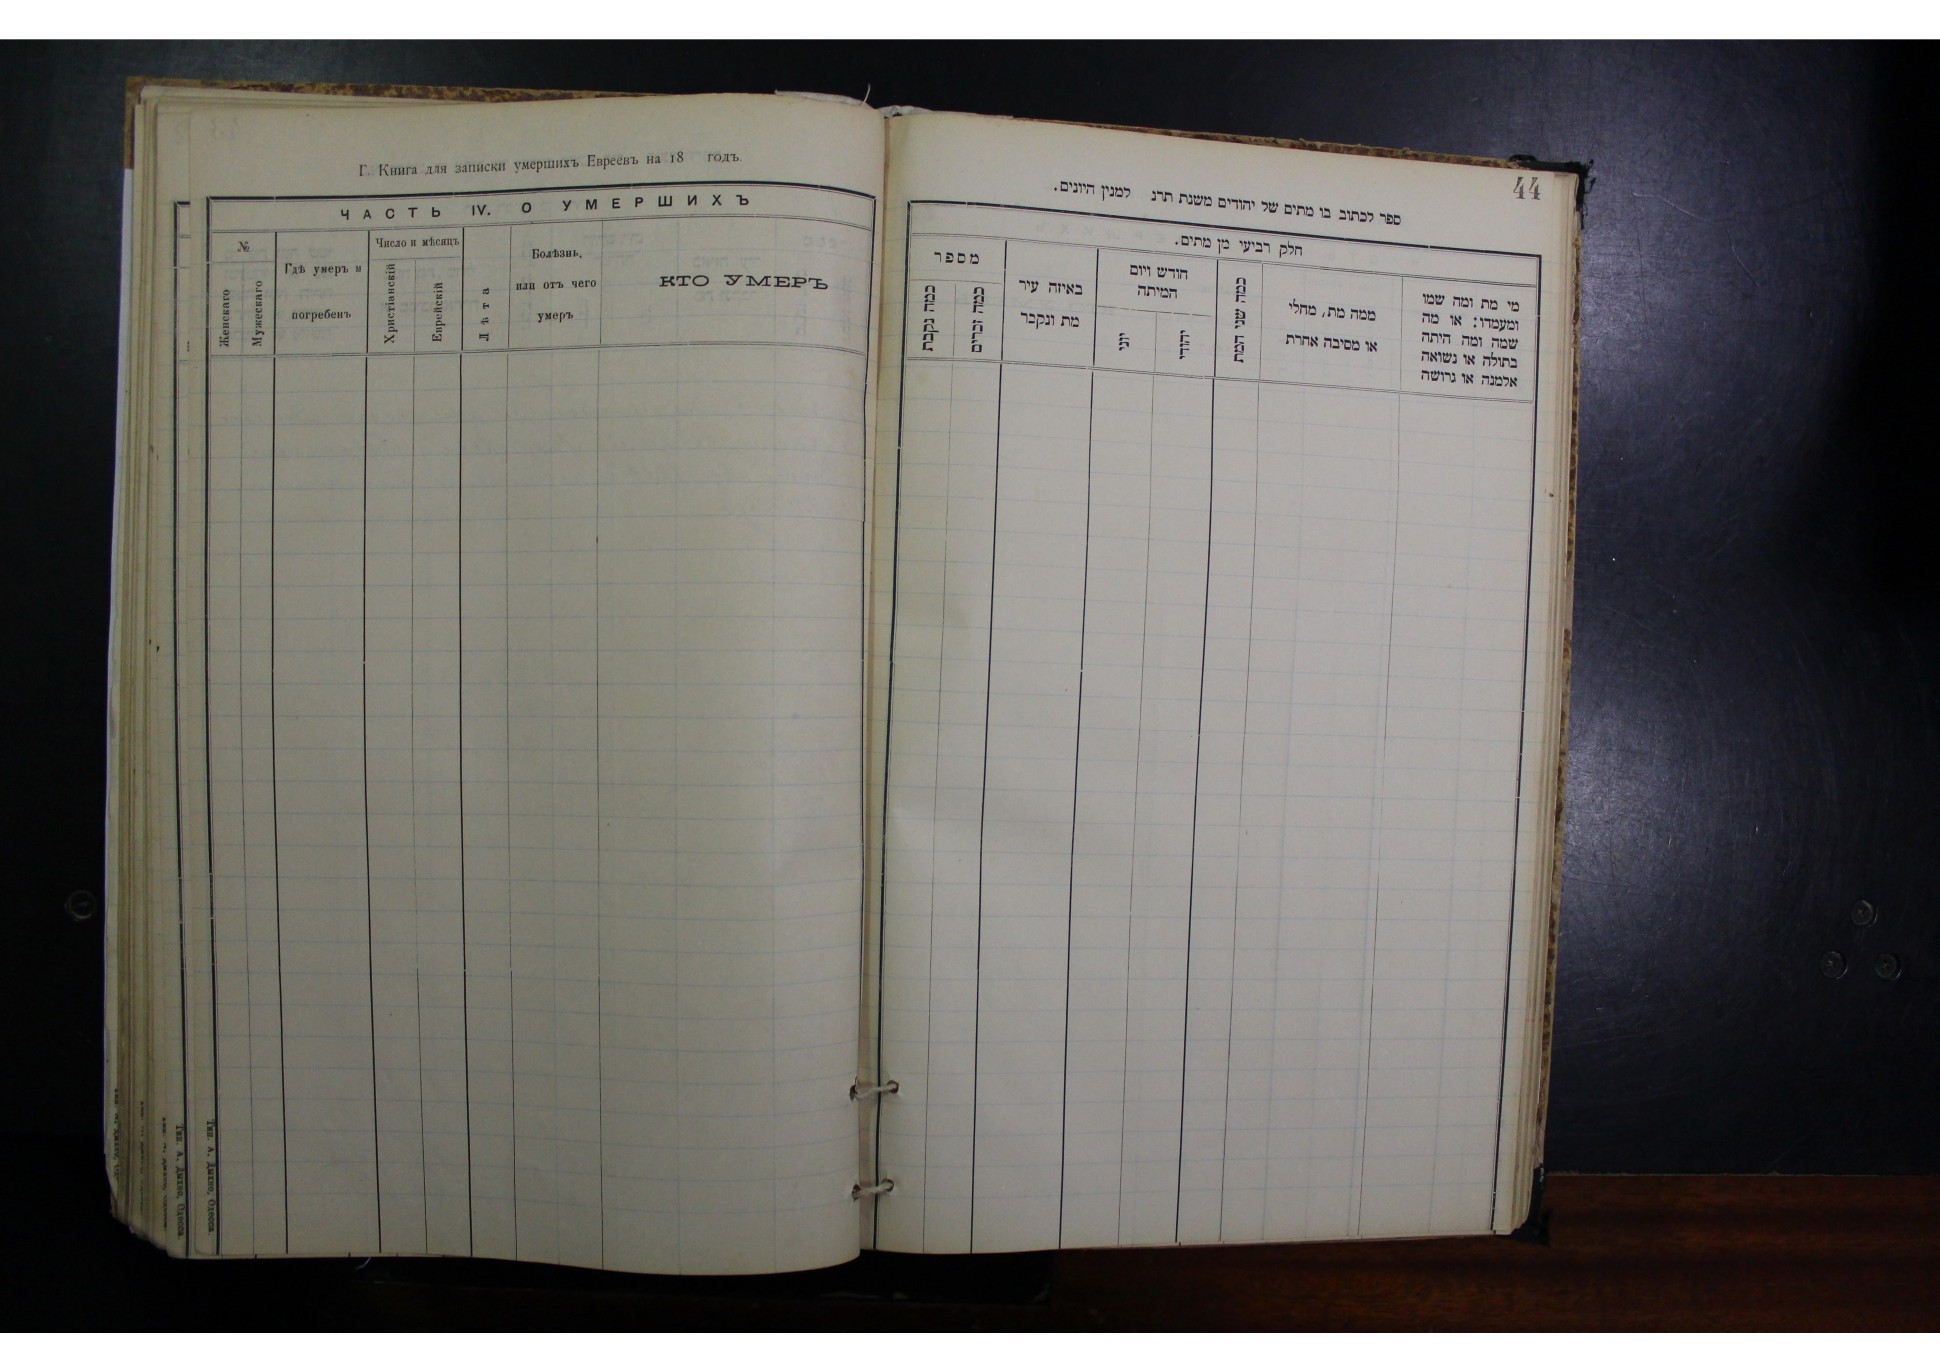 Г. Книга для записки умершихъ Евреевъ на 18 годъ.
ЧАСТЬ IV. О УМЕРШИХЪ
№
Женскаго
Мужескаго
Гдѣ умеръ и
погребенъ
Число и мѣсяцъ
Христіанскій
Еврейскій
Лѣта
Болѣзнь,
или отъ чего
умеръ
КТО УМЕРЪ
Тип. А. Дыхно, Одесса.
Тип. А. Дыхно, Одесса.
44
ספר לכתוב בו מתים של יהודים משנת תרנ למנין היונים.
חלק רביעי מן מתים.
מי מת ומה שמו
ומעמדו: או מה
שמה ומה היתה
בתולה או נשואה
אלמנה או גרושה
ממה מת, מחלי
או מסיבה אחרת
כמה שני המת
חודש ויום
המיתה
יהודי
יוני
באיזה עיר
מת ונקבר
מספר
כמה זכרים
כמה נקבת